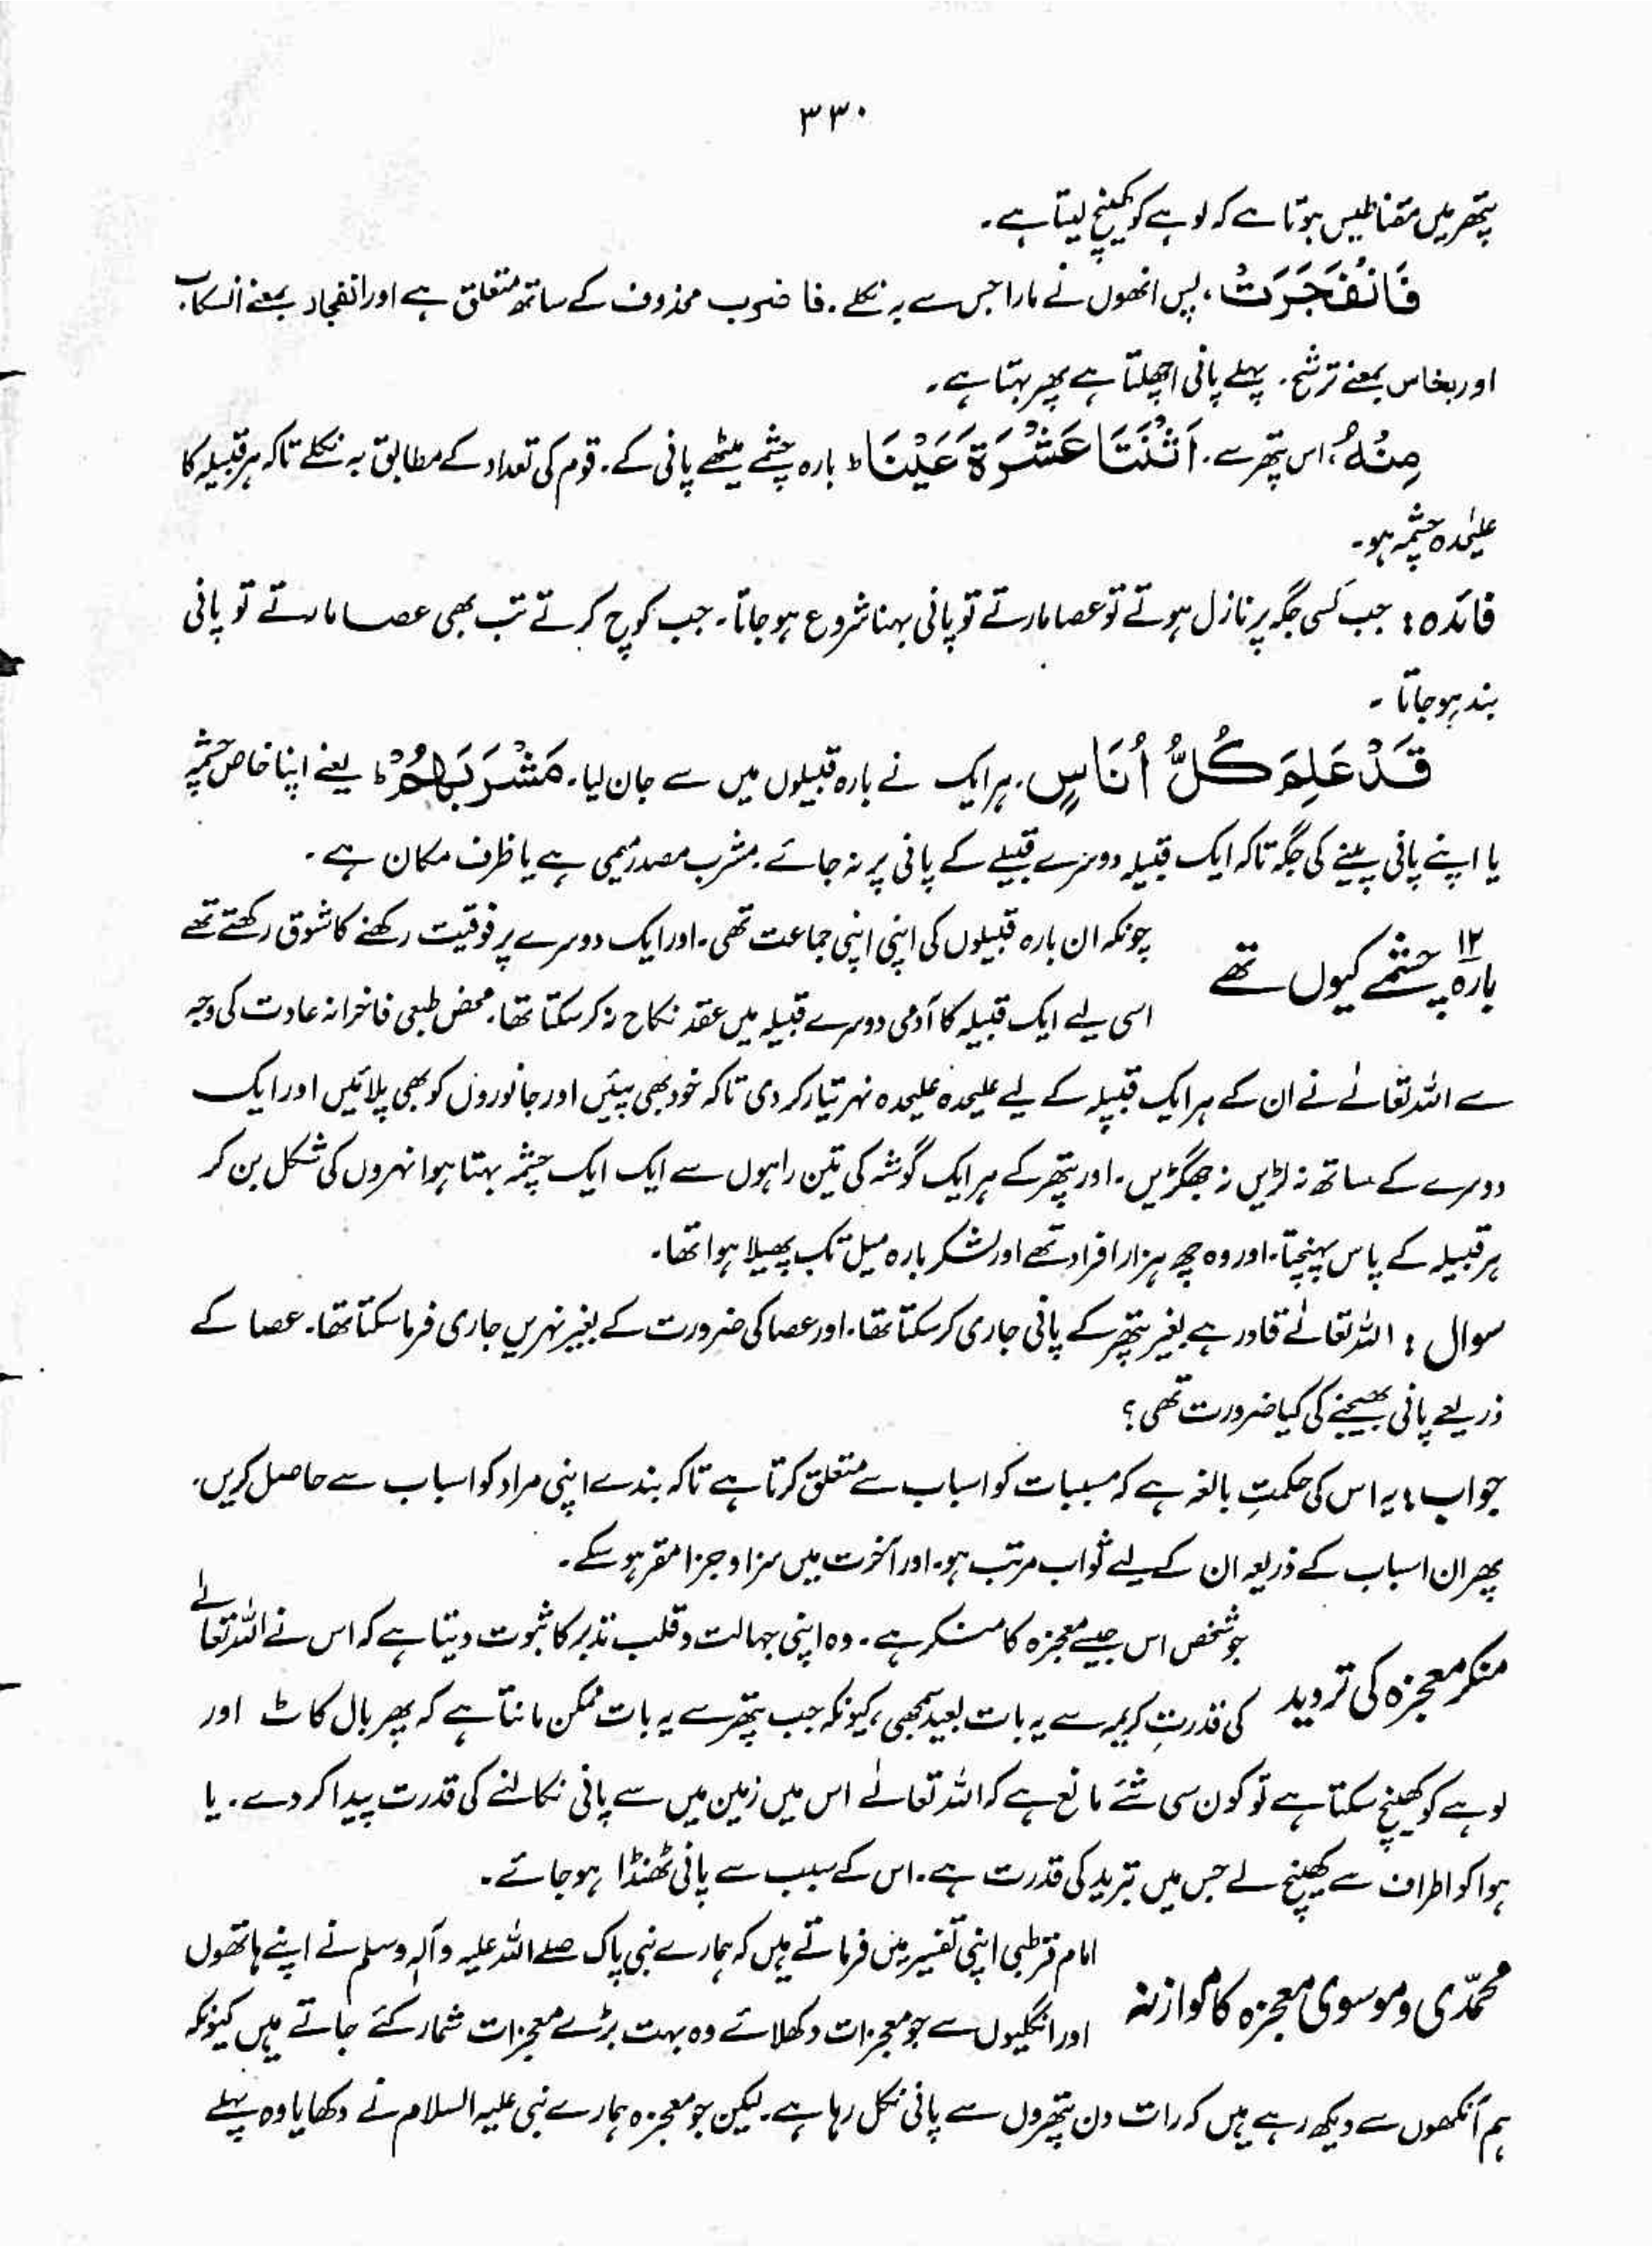 ۳۳۰
پتھر میں مقناطیس ہوتا ہے کہ لوہے کو کھینچ لیتا ہے۔
فَانْفَجَرَتْ، پس انھوں نے مارا جس سے بہ نکلے۔ فا ضرب محذوف کے ساتھ متعلق ہے اور انفجار بمعنے انسکاب
اور بخاس بمعنے ترشح۔ پہلے پانی اچھلتا ہے پھر بہتا ہے۔
مِنْهُ، اس پتھر سے۔ اثْنَتَا عَشْرَةَ عَيْنًا ط بارہ چشمے میٹھے پانی کے۔ قوم کی تعداد کے مطابق بہ نکلے تاکہ ہر قبیلہ کا
علیٰحدہ چشمہ ہو۔
فائدہ : جب کسی جگہ پر نازل ہوتے تو عصا مارتے تو پانی بہنا شروع ہو جاتا۔ جب کوچ کرتے تب بھی عصا مارتے تو پانی
بند ہو جاتا ۔
قَدْ عَلِمَ كُلُّ أُنَاسٍ، ہر ایک نے بارہ قبیلوں میں سے جان لیا۔ مَشْرَبَهُمْ ط یعنے اپنا خاص چشمہ
یا اپنے پانی پینے کی جگہ تاکہ ایک قبیلہ دوسرے قبیلے کے پانی پر نہ جائے۔ مشرب مصدر میمی ہے یا ظرف مکان ہے۔
۱۲ بارہ چشمے کیوں تھے
چونکہ ان بارہ قبیلوں کی اپنی اپنی جماعت تھی۔ اور ایک دوسرے پر فوقیت رکھنے کا شوق رکھتے تھے
اسی لیے ایک قبیلہ کا آدمی دوسرے قبیلہ میں عقد نکاح نہ کر سکتا تھا۔ محض طبعی فاخرانہ عادت کی وجہ
سے اللہ تعالےٰ نے ان کے ہر ایک قبیلہ کے لیے علیحدہ علیحدہ نہر تیار کر دی تاکہ خود بھی پئیں اور جانوروں کو بھی پلائیں اور ایک
دوسرے کے ساتھ نہ لڑیں نہ جھگڑیں۔ اور پتھر کے ہر ایک گوشہ کی تین راہوں سے ایک ایک چشمہ بہتا ہوا نہروں کی شکل بن کر
ہر قبیلہ کے پاس پہنچتا۔ اور وہ چھ ہزار افراد تھے اور لشکر بارہ میل تک پھیلا ہوا تھا۔
سوال : اللہ تعالےٰ قادر ہے بغیر پتھر کے پانی جاری کر سکتا تھا۔ اور عصا کی ضرورت کے بغیر نہریں جاری فرما سکتا تھا۔ عصا کے
ذریعے پانی بھیجنے کی کیا ضرورت تھی؟
جواب : یہ اس کی حکمتِ بالغہ ہے کہ مسببات کو اسباب سے متعلق کرتا ہے تاکہ بندے اپنی مراد کو اسباب سے حاصل کریں،
پھر ان اسباب کے ذریعہ ان کے لیے ثواب مرتب ہو۔ اور آخرت میں سزا و جزا مقرر ہو سکے۔
منکر معجزہ کی تردید
جو شخص اس جیسے معجزہ کا منکر ہے۔ وہ اپنی جہالت و قلب تدبر کا ثبوت دیتا ہے کہ اس نے اللہ تعالےٰ
کی قدرتِ کریمہ سے یہ بات بعید سمجھی، کیونکہ جب پتھر سے یہ بات ممکن مانتا ہے کہ پھر بال کاٹ اور
لوہے کو کھینچ سکتا ہے تو کون سی شئے مانع ہے کہ اللہ تعالےٰ اس میں زمین میں سے پانی نکالنے کی قدرت پیدا کر دے۔ یا
ہوا کو اطراف سے کھینچ لے جس میں تبرید کی قدرت ہے۔ اس کے سبب سے پانی ٹھنڈا ہو جائے۔
محمّدی و موسوی معجزہ کا موازنہ
امام قرطبی اپنی تفسیر میں فرماتے ہیں کہ ہمارے نبی پاک صلے اللہ علیہ وآلہٖ وسلم نے اپنے ہاتھوں
اور انگلیوں سے جو معجزات دکھلائے وہ بہت بڑے معجزات شمار کئے جاتے ہیں کیونکہ
ہم آنکھوں سے دیکھ رہے ہیں کہ رات دن پتھروں سے پانی نکل رہا ہے۔ لیکن جو معجزہ ہمارے نبی علیہ السلام نے دکھایا وہ پہلے